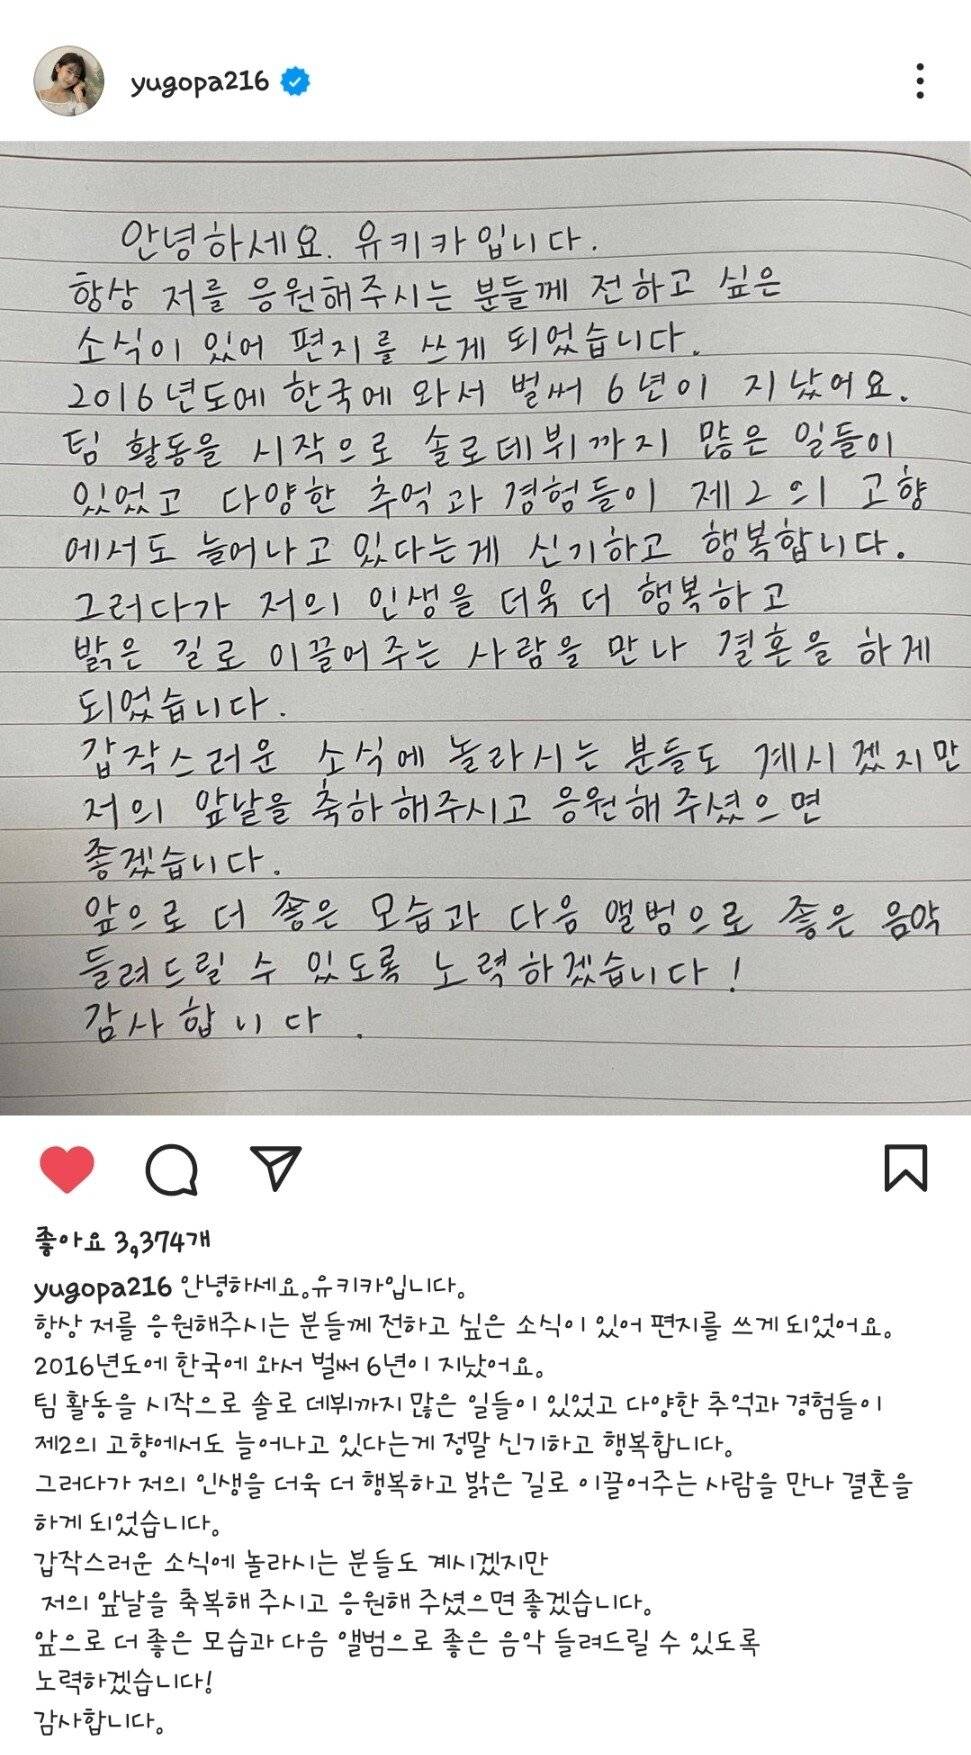 yugopa216
안녕하세요. 유키카입니다.
항상 저를 응원해주시는 분들께 전하고 싶은
소식이 있어 편지를 쓰게 되었습니다.
2016년도에 한국에 와서 벌써 6년이 지났어요.
팀 활동을 시작으로 솔로데뷔까지 많은 일들이
있었고 다양한 추억과 경험들이 제2의 고향
에서도 늘어나고 있다는게 신기하고 행복합니다.
그러다가 저의 인생을 더욱 더 행복하고
밝은 길로 이끌어주는 사람을 만나 결혼을 하게
되었습니다.
갑작스러운 소식에 놀라시는 분들도 계시겠지만
저의 앞날을 축하해주시고 응원해주셨으면
좋겠습니다.
앞으로 더 좋은 모습과 다음 앨범으로 좋은 음악
들려드릴 수 있도록 노력하겠습니다!
감사합니다.
좋아요 3,374개
yugopa216 안녕하세요.유키카입니다.
항상 저를 응원해주시는 분들께 전하고 싶은 소식이 있어 편지를 쓰게 되었어요.
2016년도에 한국에 와서 벌써 6년이 지났어요.
팀 활동을 시작으로 솔로 데뷔까지 많은 일들이 있었고 다양한 추억과 경험들이
제2의 고향에서도 늘어나고 있다는게 정말 신기하고 행복합니다.
그러다가 저의 인생을 더욱 더 행복하고 밝은 길로 이끌어주는 사람을 만나 결혼을
하게 되었습니다.
갑작스러운 소식에 놀라시는 분들도 계시겠지만
저의 앞날을 축복해 주시고 응원해 주셨으면 좋겠습니다.
앞으로 더 좋은 모습과 다음 앨범으로 좋은 음악 들려드릴 수 있도록
노력하겠습니다!
감사합니다.